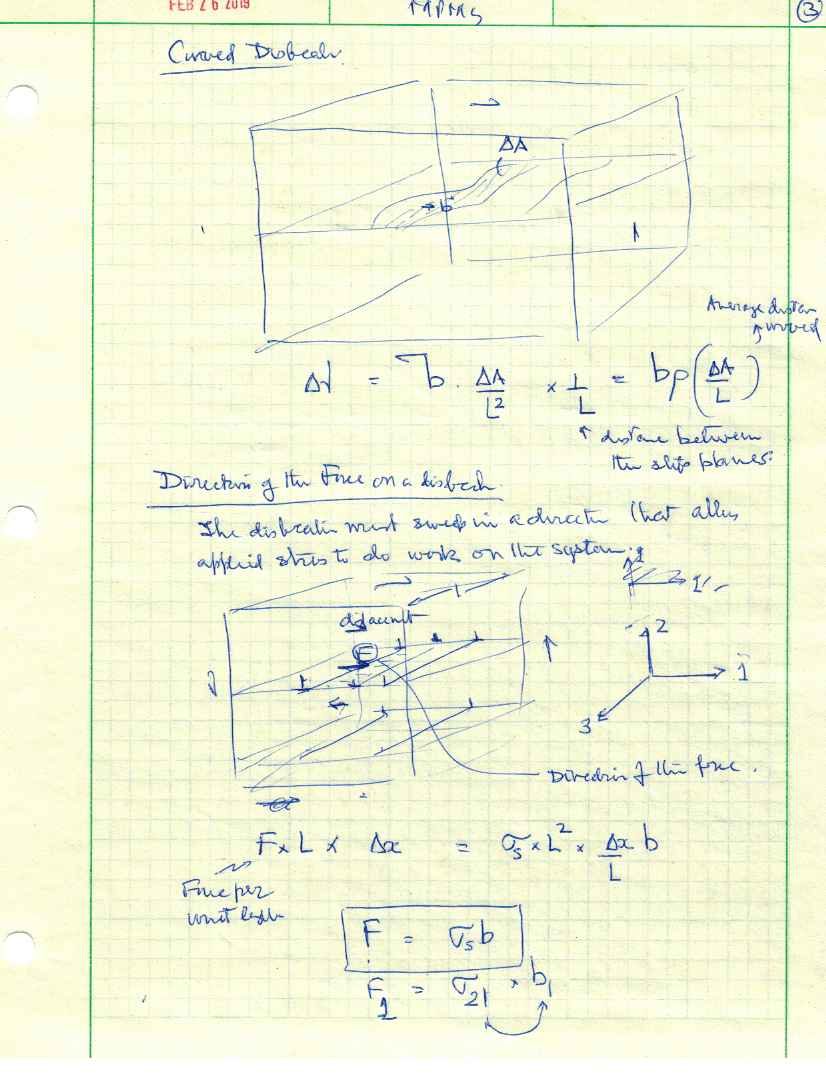 FEB 26 2019
MPMS
3
Curved Dislocatn.
ΔA
→ b
Average distan
moved
Δγ = b . ΔA/L² × 1/L = bρ(ΔA/L)
↑ distance between
the slip planes.
Direction of the Force on a dislocatn.
The dislocatin must sweep in a directn that allows
applied stress to do work on the system.
L
1
2
1
3
F
Direction of the force.
F × L × Δx = σs × L² × Δx/L b
Force per
unit length
F = σs b
F1 = σ21 × b1